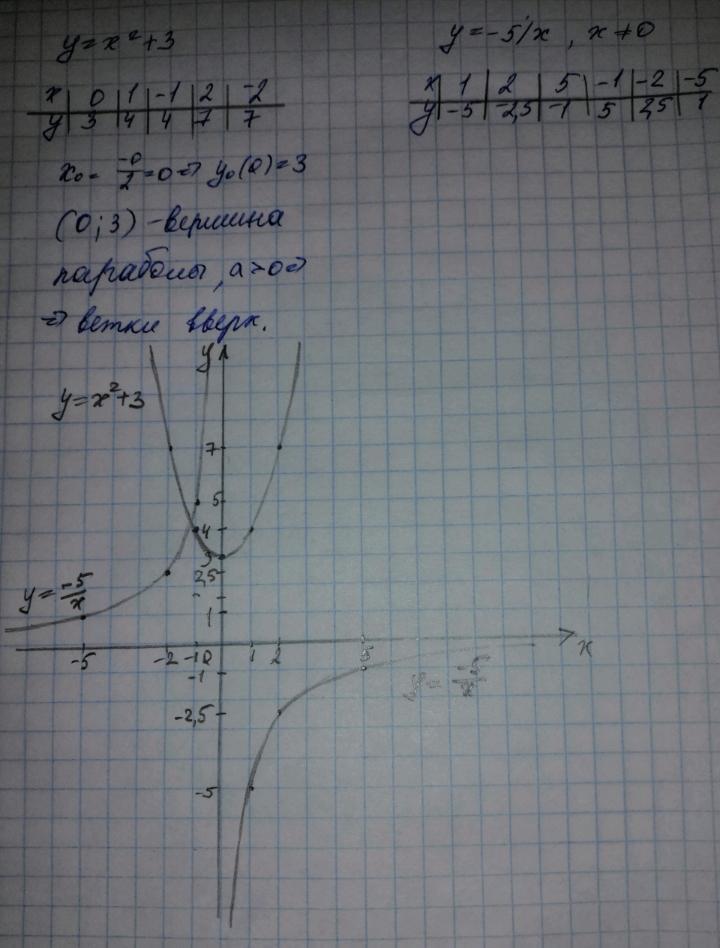 y=x²+3
x | 0 | 1 | -1 | 2 | -2
y | 3 | 4 | 4 | 7 | 7
x₀ = -0/2 = 0 => y₀(0)=3
(0;3) - вершина
параболы, a>0 =>
=> ветки вверх.
y=-5/x, x≠0
x | 1 | 2 | 5 | -1 | -2 | -5
y | -5 | -2,5 | -1 | 5 | 2,5 | 1
y
y=x²+3
7
5
4
3
2,5
y=-5/x
1
-5 -2 -1 0 1 2 5 x
-1
y=-5/x
-2,5
-5